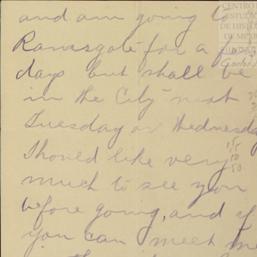 and am going to
Ramsgate for a few
days but shall be
in the City next
Tuesday or Wednesday
I should like very
much to see you
before going, and if
you can meet me
CENTRO
ESTUDI
DE HISTO
DE MEXI